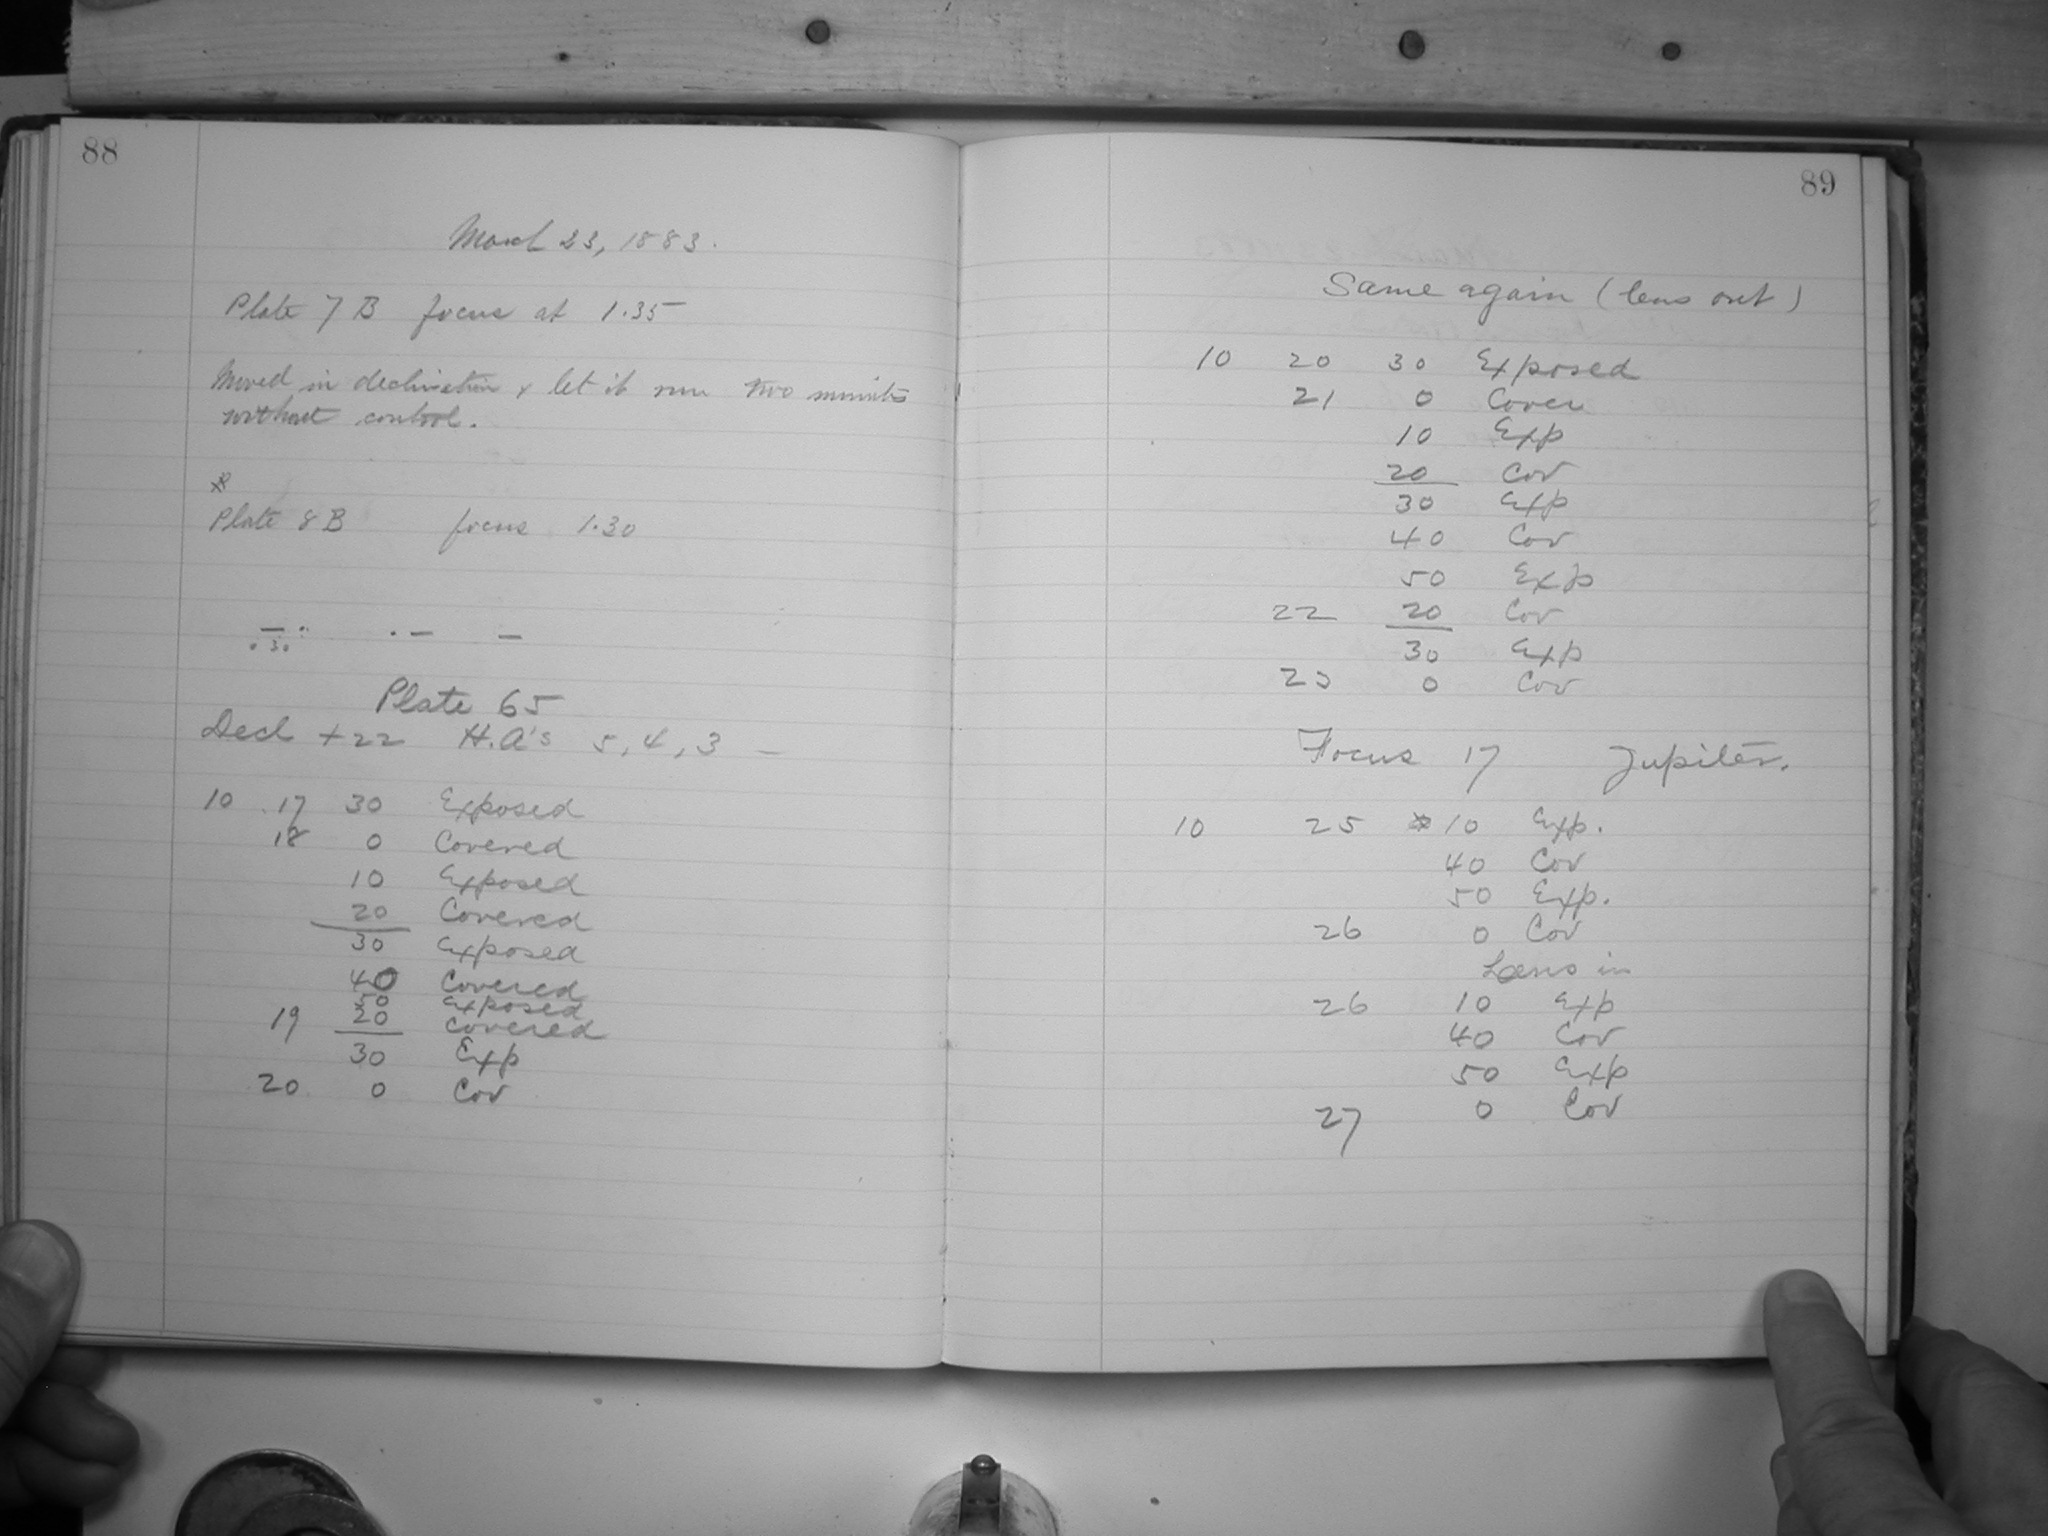 88
March 23, 1883.
Plate 7 B focus at 1.35
Moved in declination & let it run two minutes
without control.
Plate 8 B focus 1.30
Plate 65
Decl +22 H.A's 5, 4, 3 —
10 17 30 Exposed
18 0 Covered
10 Exposed
20 Covered
30 Exposed
40 Covered
50 Exposed
19 20 Covered
30 Exp
20 0 Cov
89
Same again (lens out)
10 20 30 Exposed
21 0 Cover
10 Exp
20 Cov
30 Exp
40 Cov
50 Exp
22 20 Cov
30 Exp
23 0 Cov
Focus 17 Jupiter.
10 25 10 Exp.
40 Cov
50 Exp.
26 0 Cov
Lens in
26 10 Exp
40 Cov
50 Exp
27 0 Cov